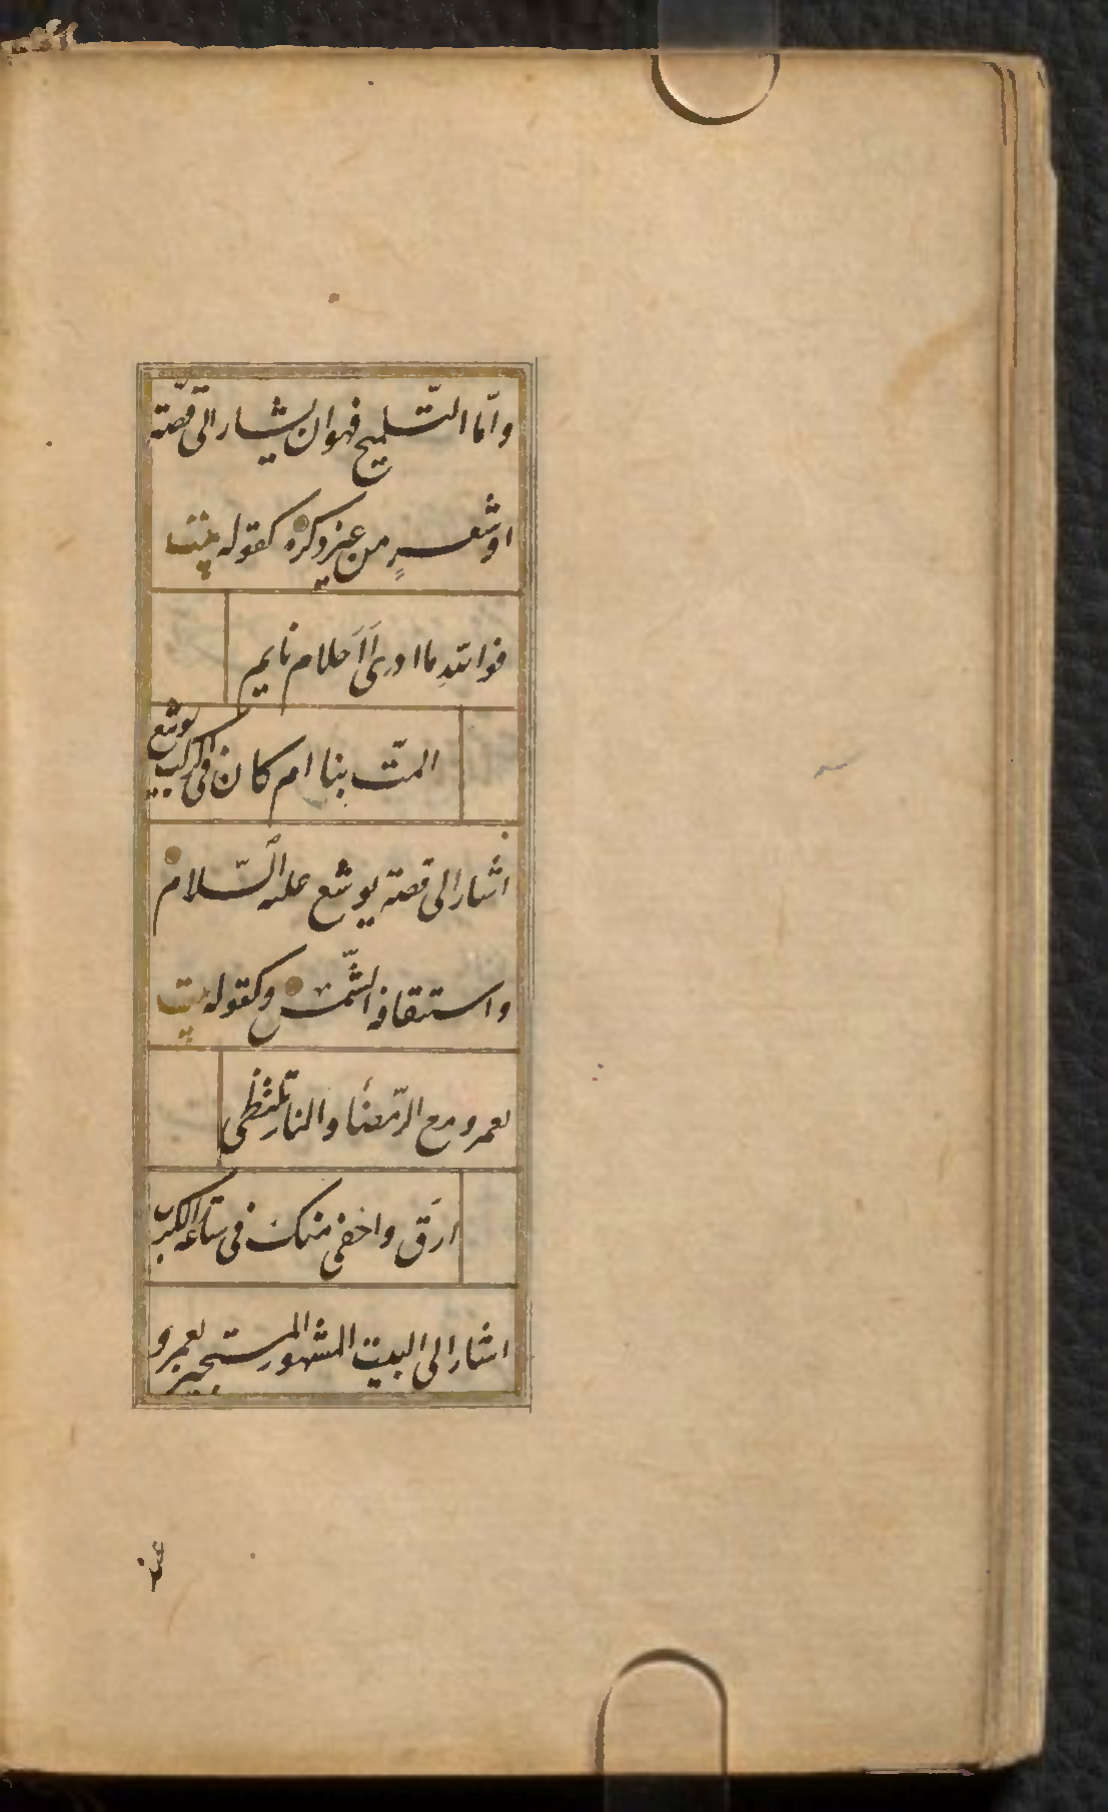 وامّا التّلميح فهو ان يشار الى قصّة
او شعرٍ من غير ذكره كقوله بيت
فوالله ما ادرى أَأَحلام نايم
المّت بنا ام كان فى الركب يوشع
اشار الى قصة يوشع عليه السّلام
واستيقافه الشّمس وكقوله بيت
لعمرو مع الرّمضاء والنار تلتظى
ارَق واخفى منك فى ساعة الكرب
اشار الى البيت المشهور المستجير بعمرو